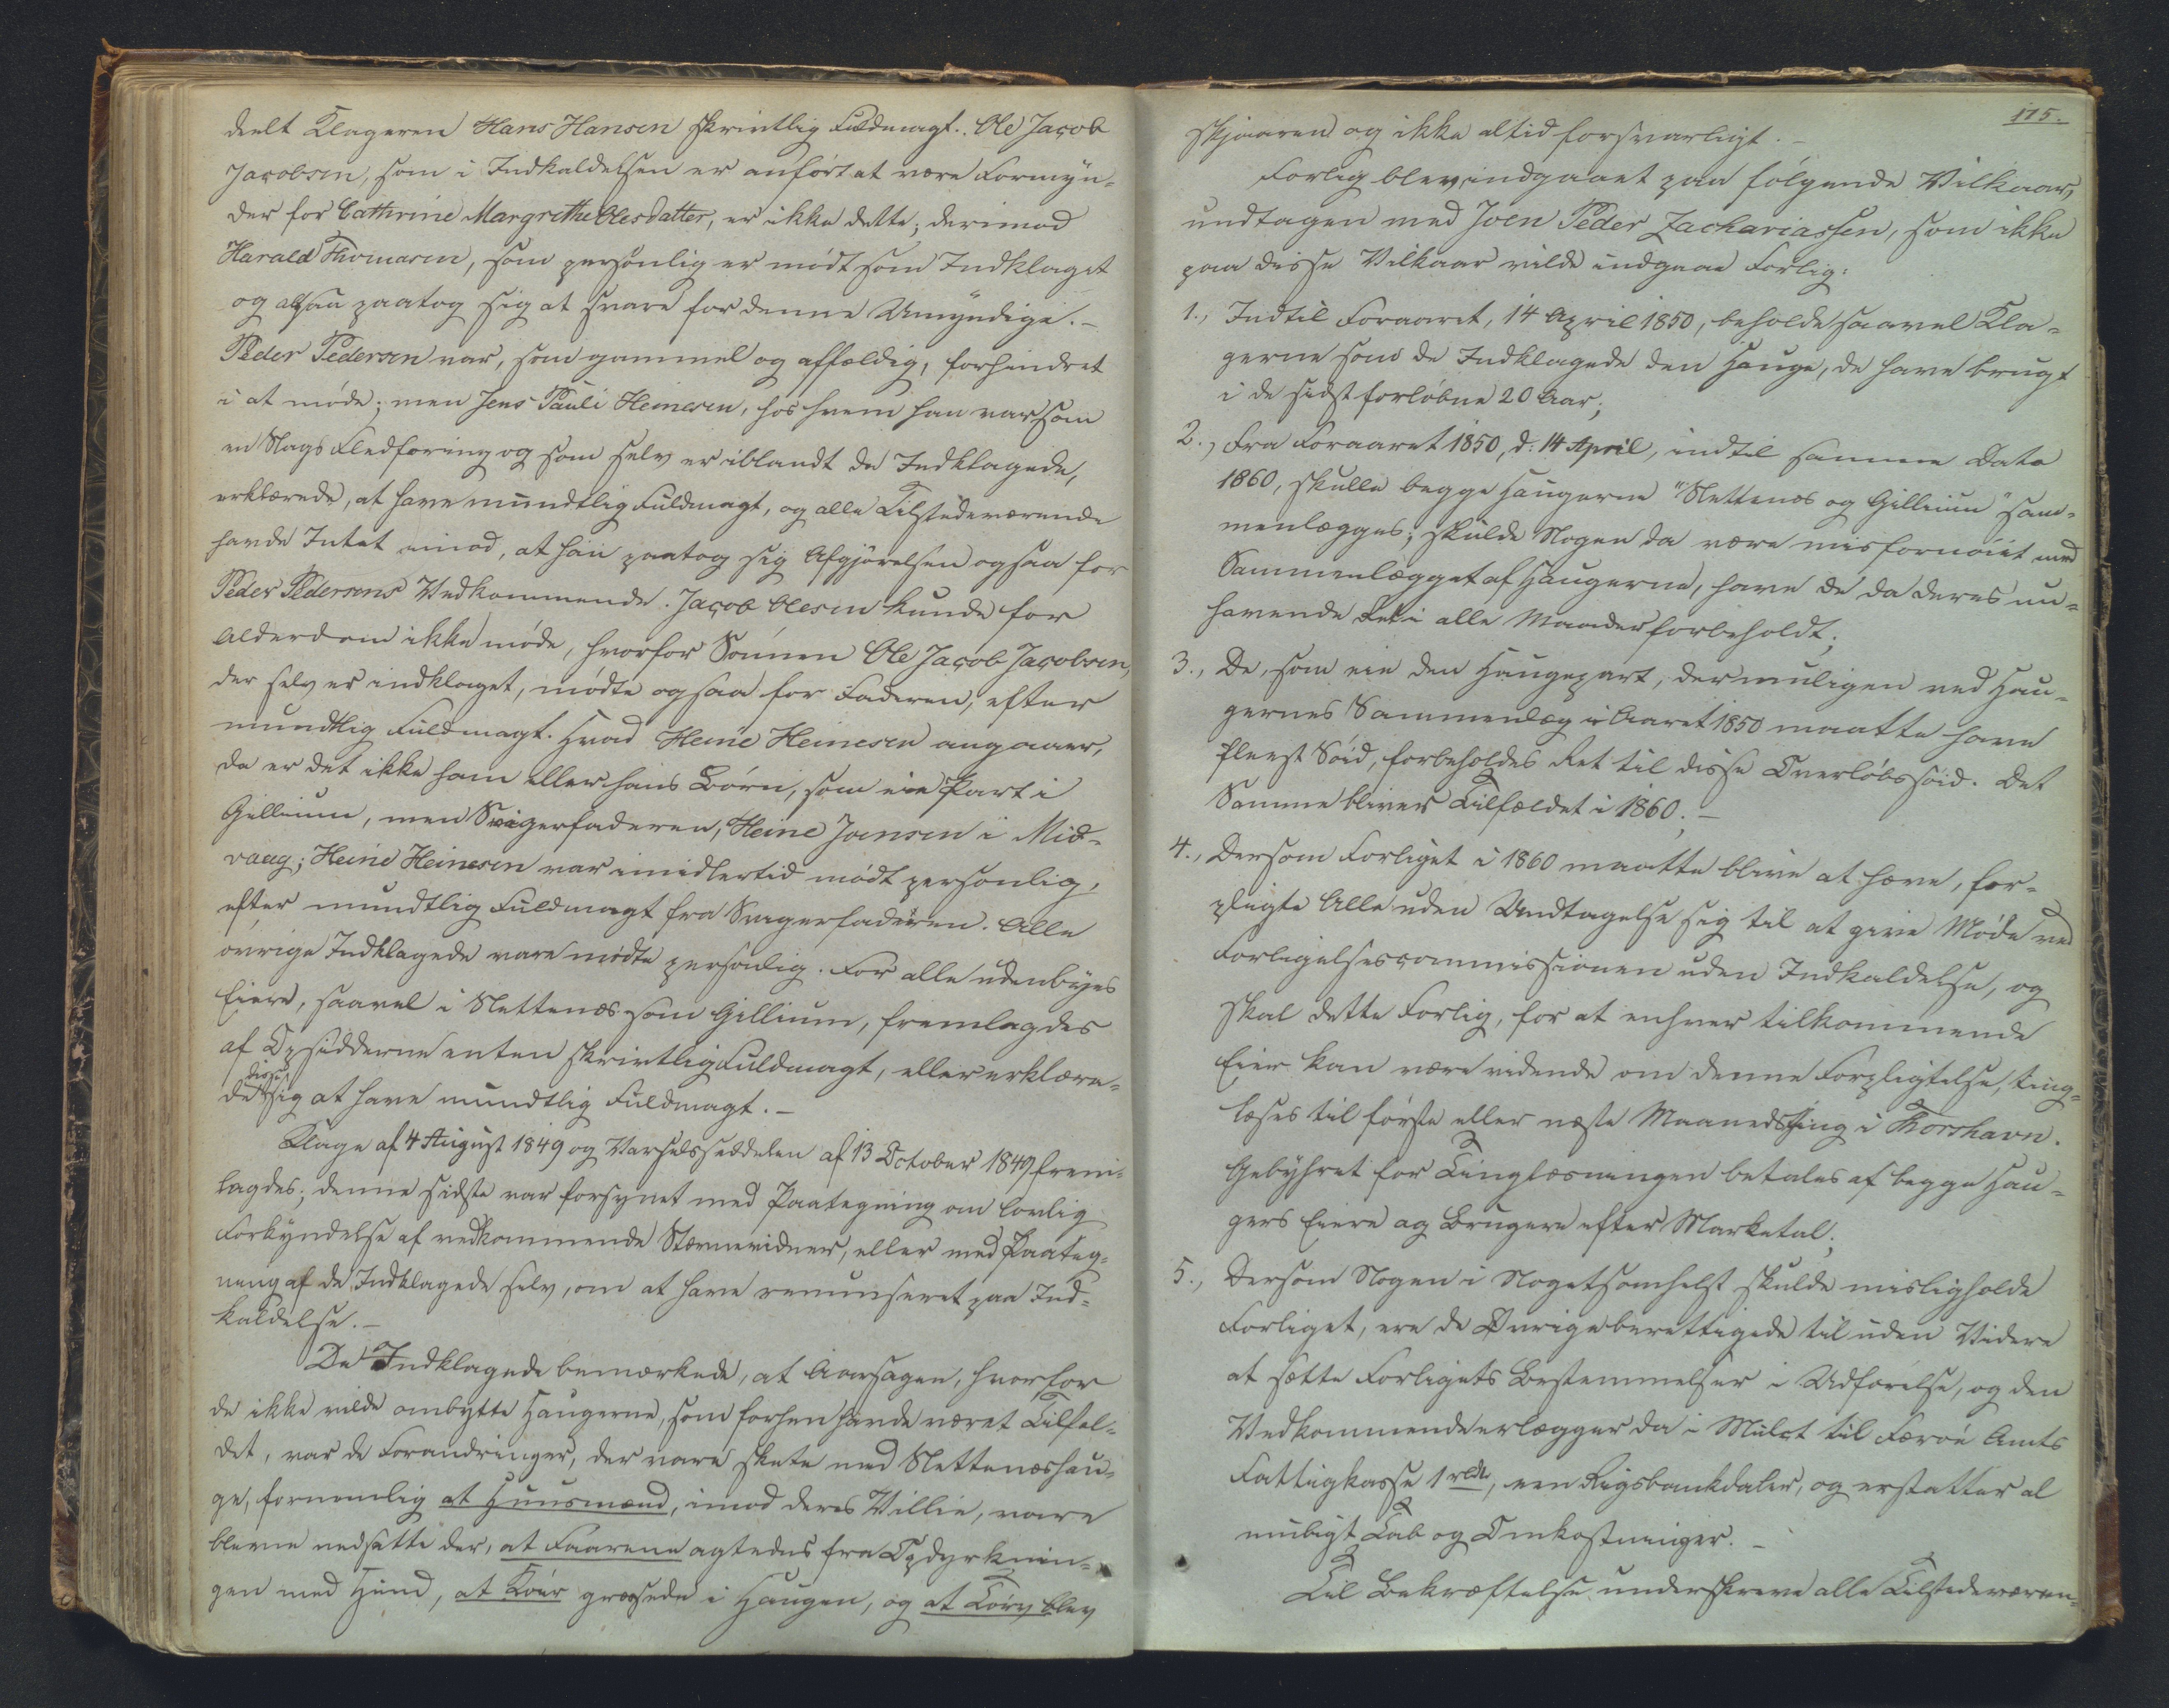 deelt Klageren Hans Hansen skrivtlig Fuldmagt. Ole Jacob
Jacobsen, som i Indkaldelsen er anført at være Formyn-
der for Cathrine Margrethe Olesdatter, er ikke dette; derimod
Harald Thomasen, som personlig er mødt som Indklaget
og altsaa paatog sig at svare for denne Umyndige. –
Peder Pedersen var, som gammel og affældig, forhindret
i at møde; men Jens Pauli Heinesen, hos hvem han var som
en Slags Fledføring og som selv er iblandt de Indklagede,
erklærede, at have mundtlig Fuldmagt, og alle Tilstedeværende
havde Intet imod, at han paatog sig Afgjørelsen ogsaa for
Peder Pedersens Vedkommende. Jacob Olesen kunde for
Alderdom ikke møde, hvorfor Sønnen Ole Jacob Jacobsen,
der selv er indklaget, mødte ogsaa for Faderen, efter
mundtlig Fuldmagt. Hvad Heine Heinesen angaaer,
da er det ikke ham eller hans Børn, som eie Part i
Gillium, men Svigerfaderen, Heine Joensen i Mid-
vaag; Heine Heinesen var imidlertid mødt personlig,
efter mundtlig Fuldmagt fra Svigerfaderen. Alle
øvrige Indklagede vare mødte personlig. For alle udenbyes
Eiere, saavel i Slettenæs som Gillium, fremlagdes
af Opsidderne enten skrivtlig Fuldmagt, eller erklære-
de disse sig at have mundtlig Fuldmagt. –
Klage af 4 August 1849 og Varselsseddelen af 13 October 1849 frem-
lagdes; denne sidste var forsynet med Paategning om lovlig
Forkyndelse af vedkommende Stævnevidner, eller med Paateg-
ning af de Indklagede selv, om at have renunseret paa Ind-
kaldelse. –
De Indklagede bemærkede, at Aarsagen, hvorfor
de ikke vilde ombytte Haugerne, som forhen havde været Tilfæl-
det, var de Forandringer, der vare skete med Slettenæshau-
ge, fornemlig at Huusmænd, imod deres Villie, vare
blevne nedsatte der, at Faarene agtedes fra Opdyrknin-
gen med Hund, at Køer græssede i Haugen, og at Tørv blev
175.
skjaaren og ikke altid forsvarligt. –
Forlig blev indgaaet paa følgende Vilkaar,
undtagen med Joen Peder Zachariassen, som ikke
paa disse Vilkaar vilde indgaae Forlig:
1., Indtil Foraaret, 14 April 1850, beholde saavel Kla-
gerne som de Indklagede den Hauge, de have brugt
i de sidst forløbne 20 Aar;
2., Fra Foraaret 1850, d: 14 April, indtil samme Dato
1860, skulle begge Haugerne "Slettenæs og Gillium" sam-
menlægges; skulde Nogen da være misfornøiet med
Sammenlægget af Haugerne, have de da deres nu-
havende Ret i alle Maader forbeholdt;
3., De, som eie den Haugepart, der muligen ved Hau-
gernes Sammenlæg i Aaret 1850 maatte have
fleest Søid, forbeholdes Ret til disse Overløbssøid. Det
Samme bliver Tilfældet i 1860; –
4., Dersom Forliget i 1860 maatte blive at hæve, for-
pligte Alle uden Undtagelse sig til at give Møde ved
Forligelsescommissionen uden Indkaldelse, og
skal dette Forlig, for at enhver tilkommende
Eier kan være vidende om denne Forpligtelse, ting-
læses til første eller næste Maanedsting i Thorshavn.
Gebyhret for Tinglæsningen betales af begge Hau-
gers Eiere og Brugere efter Marketal;
5., Dersom Nogen i Nogetsomhelst skulde misligholde
Forliget, ere de Øvrige berettigede til uden Videre
at sætte Forligets Bestemmelser i Udførelse, og den
Vedkommende erlægger da i Mulct til Færøe Amts
Fattigkasse 1 rbdlr, een Rigsbankdaler, og erstatter al
muligt Tab og Omkostninger. –
Til Bekræftelse underskreve alle Tilstedeværen-